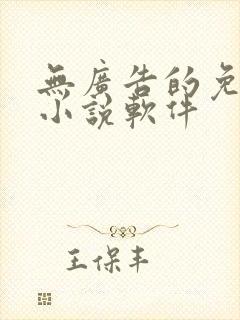 無廣告的免
小說軟件
王保丰